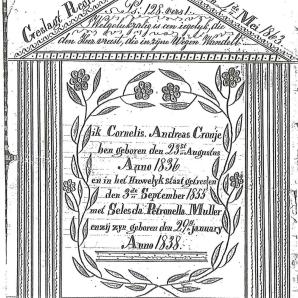 Ps. 128 vers 1
Welgelukzalig is een iegelyk die
den Heer vreest, die in zyne Wegen Wandelt.
Mei 1863
ik Cornelis. Andreas Cronje
ben geboren den 23st Augustus
Anno 1836
en in het Huwelyk staat getreden
den 3de September 1855
met Selesda. Petronella. Muller
en zij zyn geboren den 29sten January
Anno 1838.